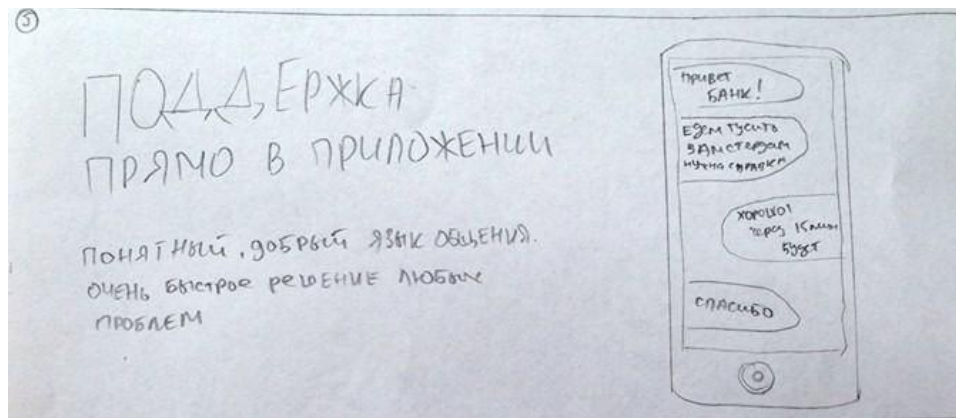 5
ПОДДЕРЖКА
ПРЯМО В ПРИЛОЖЕНИИ
ПОНЯТНЫЙ, ДОБРЫЙ ЯЗЫК ОБЩЕНИЯ.
ОЧЕНЬ БЫСТРОЕ РЕШЕНИЕ ЛЮБЫХ
ПРОБЛЕМ
ПРИВЕТ
БАНК!
ЕДЕМ ТУСИТЬ
В АМСТЕРДАМ
НУЖНА СПРАВКА
ХОРОШО!
через 15 мин
будет
СПАСИБО